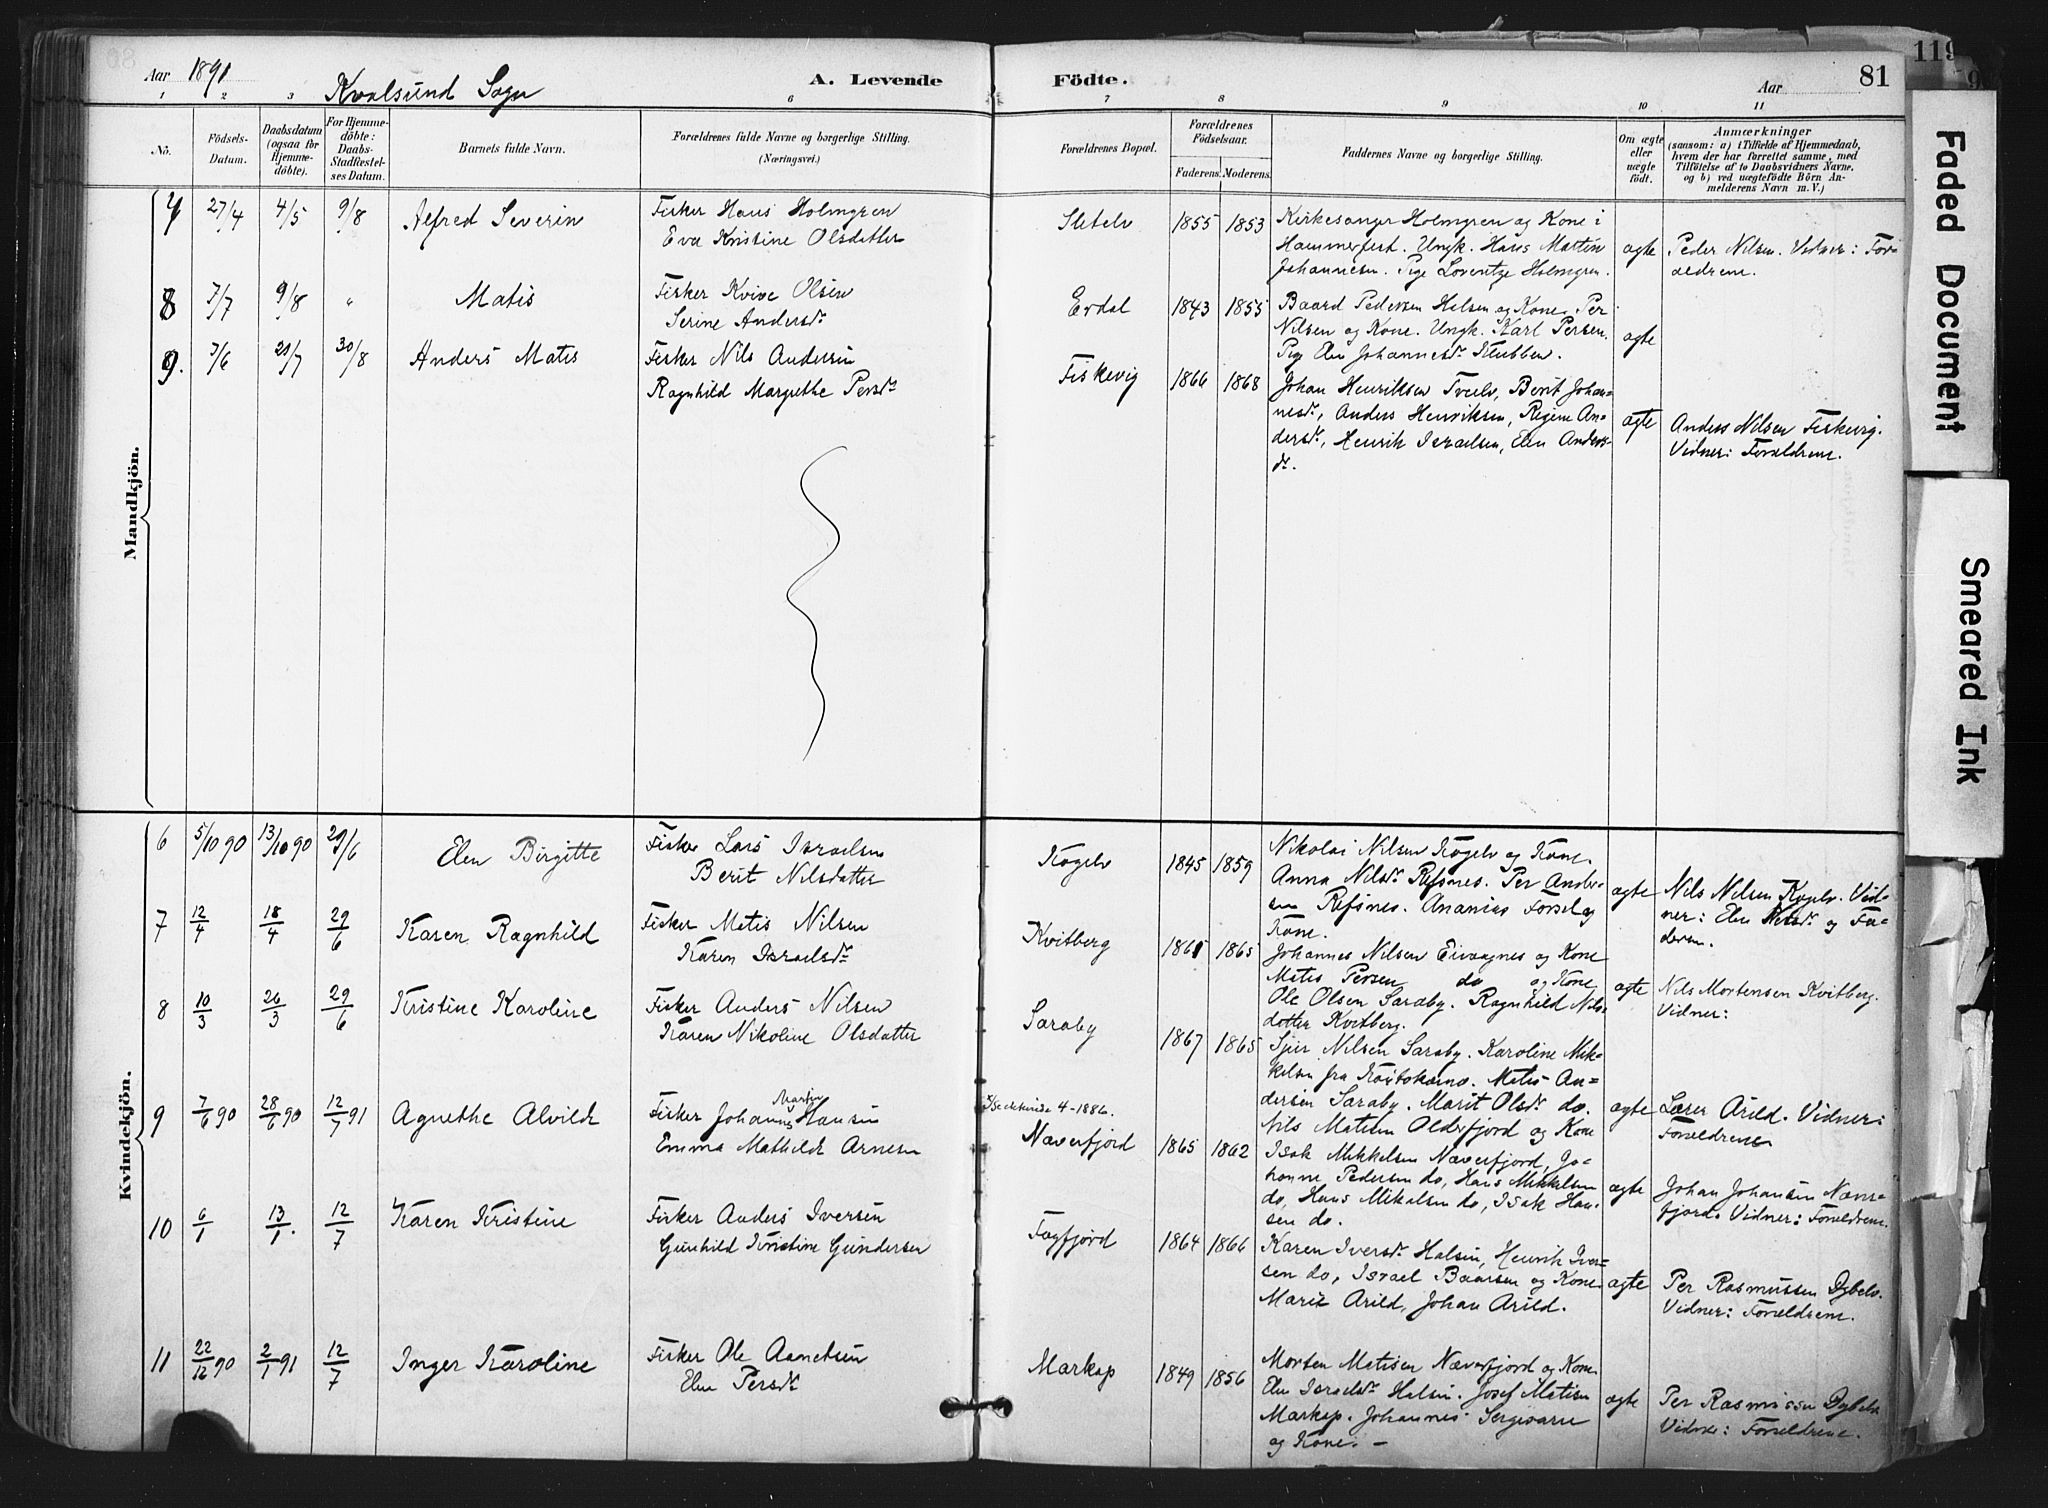 Aar 1891
Kvalsund Sogn
A. Levende Födte.
Aar
81
119
1 2 3 6 7 8 9 10 11
No.
Födsels-Datum.
Daabsdatum (ogsaa for Hjemmedöbte).
For Hjemmedöbte: Daabs-Stadfæstelses Datum.
Barnets fulde Navn.
Forældrenes fulde Navne og borgerlige Stilling. (Næringsvei.)
Forældrenes Bopæl.
Forældrenes Födselsaar.
Faderens. Moderens.
Faddernes Navne og borgerlige Stilling.
Om ægte eller uægte födt.
Anmærkninger
(saasom: a) i Tilfælde af Hjemmedaab, hvem der har forrettet samme, med Tilföielse af to Daabsvidners Navne, og b) ved uægtefödte Börn Anmelderens Navn m. V.)
Mandkjön.
7 27/4 4/5 9/8 Alfred Severin
Fisker Hans Holmgren
Eva Kristine Olsdatter
1855 1853
Kirkesanger Holmgren og Kone i
Hammerfest. Ungk. Hans Martin
Johannesen. Pige Lorentze Holmgren.
ægte
Peder Nilsen. Vidner: For-
ældrene.
8 3/7 9/8 " Matis
Fisker Kvive Olsen
Serine Andersdr
Erdal 1843 1855
Baard Pedersen Halsen og Kone. Per
Nilsen og Kone. Ungk. Karl Persen.
Pige Elen Johannesdr Klubben.
ægte
9. 3/6 20/7 30/8 Anders Matis
Fisker Nils Andersen
Ragnhild Margrethe Persdr
Fiskevig 1866 1868
Johan Henriksen Tveelv, Berit Johan-
nesdr, Anders Henriksen, Regine An-
dersdr, Henrik Israelsen, Elen Anders-
dr.
ægte
Anders Nilsen Fiskevig.
Vidner: Forældrene.
Kvindekjön.
6 5/10 90 13/10 90 29/6 Elen Birgitte
Fisker Lars Israelsen
Berit Nilsdatter
Kogelv 1845 1859
Nikolai Nilsen Kogelv og Kone.
Anna Nilsdr Refsnes. Per Ander-
sen Refsnes. Ananias Forsel og
Kone.
ægte
Nils Nilsen Kogelv. Vid-
ner: Elen Nilsdr og Fa-
deren.
7 12/4 18/4 29/6 Karen Ragnhild
Fisker Matis Nilsen
Karen Israelsdr
Kvitberg 1861 1865
Johannes Nilsen Eivagnes og Kone
Matis Persen do og Kone
Ole Olsen Saraby. Ragnhild Nils-
datter Kvitberg.
ægte
Nils Mortensen Kvitberg.
Vidner:
8 10/3 26/3 29/6 Kristine Karoline
Fisker Anders Nilsen
Karen Nikoline Olsdatter
Saraby 1867 1865
Sjur Nilsen Saraby. Karoline Mik-
kelsen fra Koutokeino. Matis An-
dersen Saraby. Marit Olsdr do.
Nils Matisen Olderfjord og Kone
ægte
Lærer Arild. Vidner:
Forældrene
9 7/6 90 28/6 90 12/7 91 Agnethe Alvild
Fisker Johannes Martin Hansen
Emma Mathilde Arnesen
4-1886.
Næverfjord 1865 1862
Isak Mikkelsen Næverfjord, Jo-
hanne Pedersen do, Hans Mikkelsen
do, Hans Mikalsen do, Isak Han-
sen do.
ægte
Johan Johansen Næver-
fjord. Vidner: Forældrene.
10 6/1 13/1. 12/7 Karen Kristine
Fisker Anders Iversen
Gunhild Kristine Gundersen
Fægfjord 1864 1866
Karen Iversdr Halsen, Henrik Iver-
sen do, Israel Baarsen og Kone
Marit Arild, Johan Arild.
ægte
Per Rasmussen Dybelv.
Vidner: Forældrene.
11 22/12 90 2/1 91 12/7 Inger Karoline
Fisker Ole Aanetsen
Elen Persdr
Markop 1849 1856
Morten Matisen Næverfjord og Kone
Elen Israelsdr Halsen. Josef Matisen
Markop. Johannes
og Kone. –
ægte
Per Rasmussen Dybelv
Vidner: Forældrene.
Faded Document
Smeared Ink